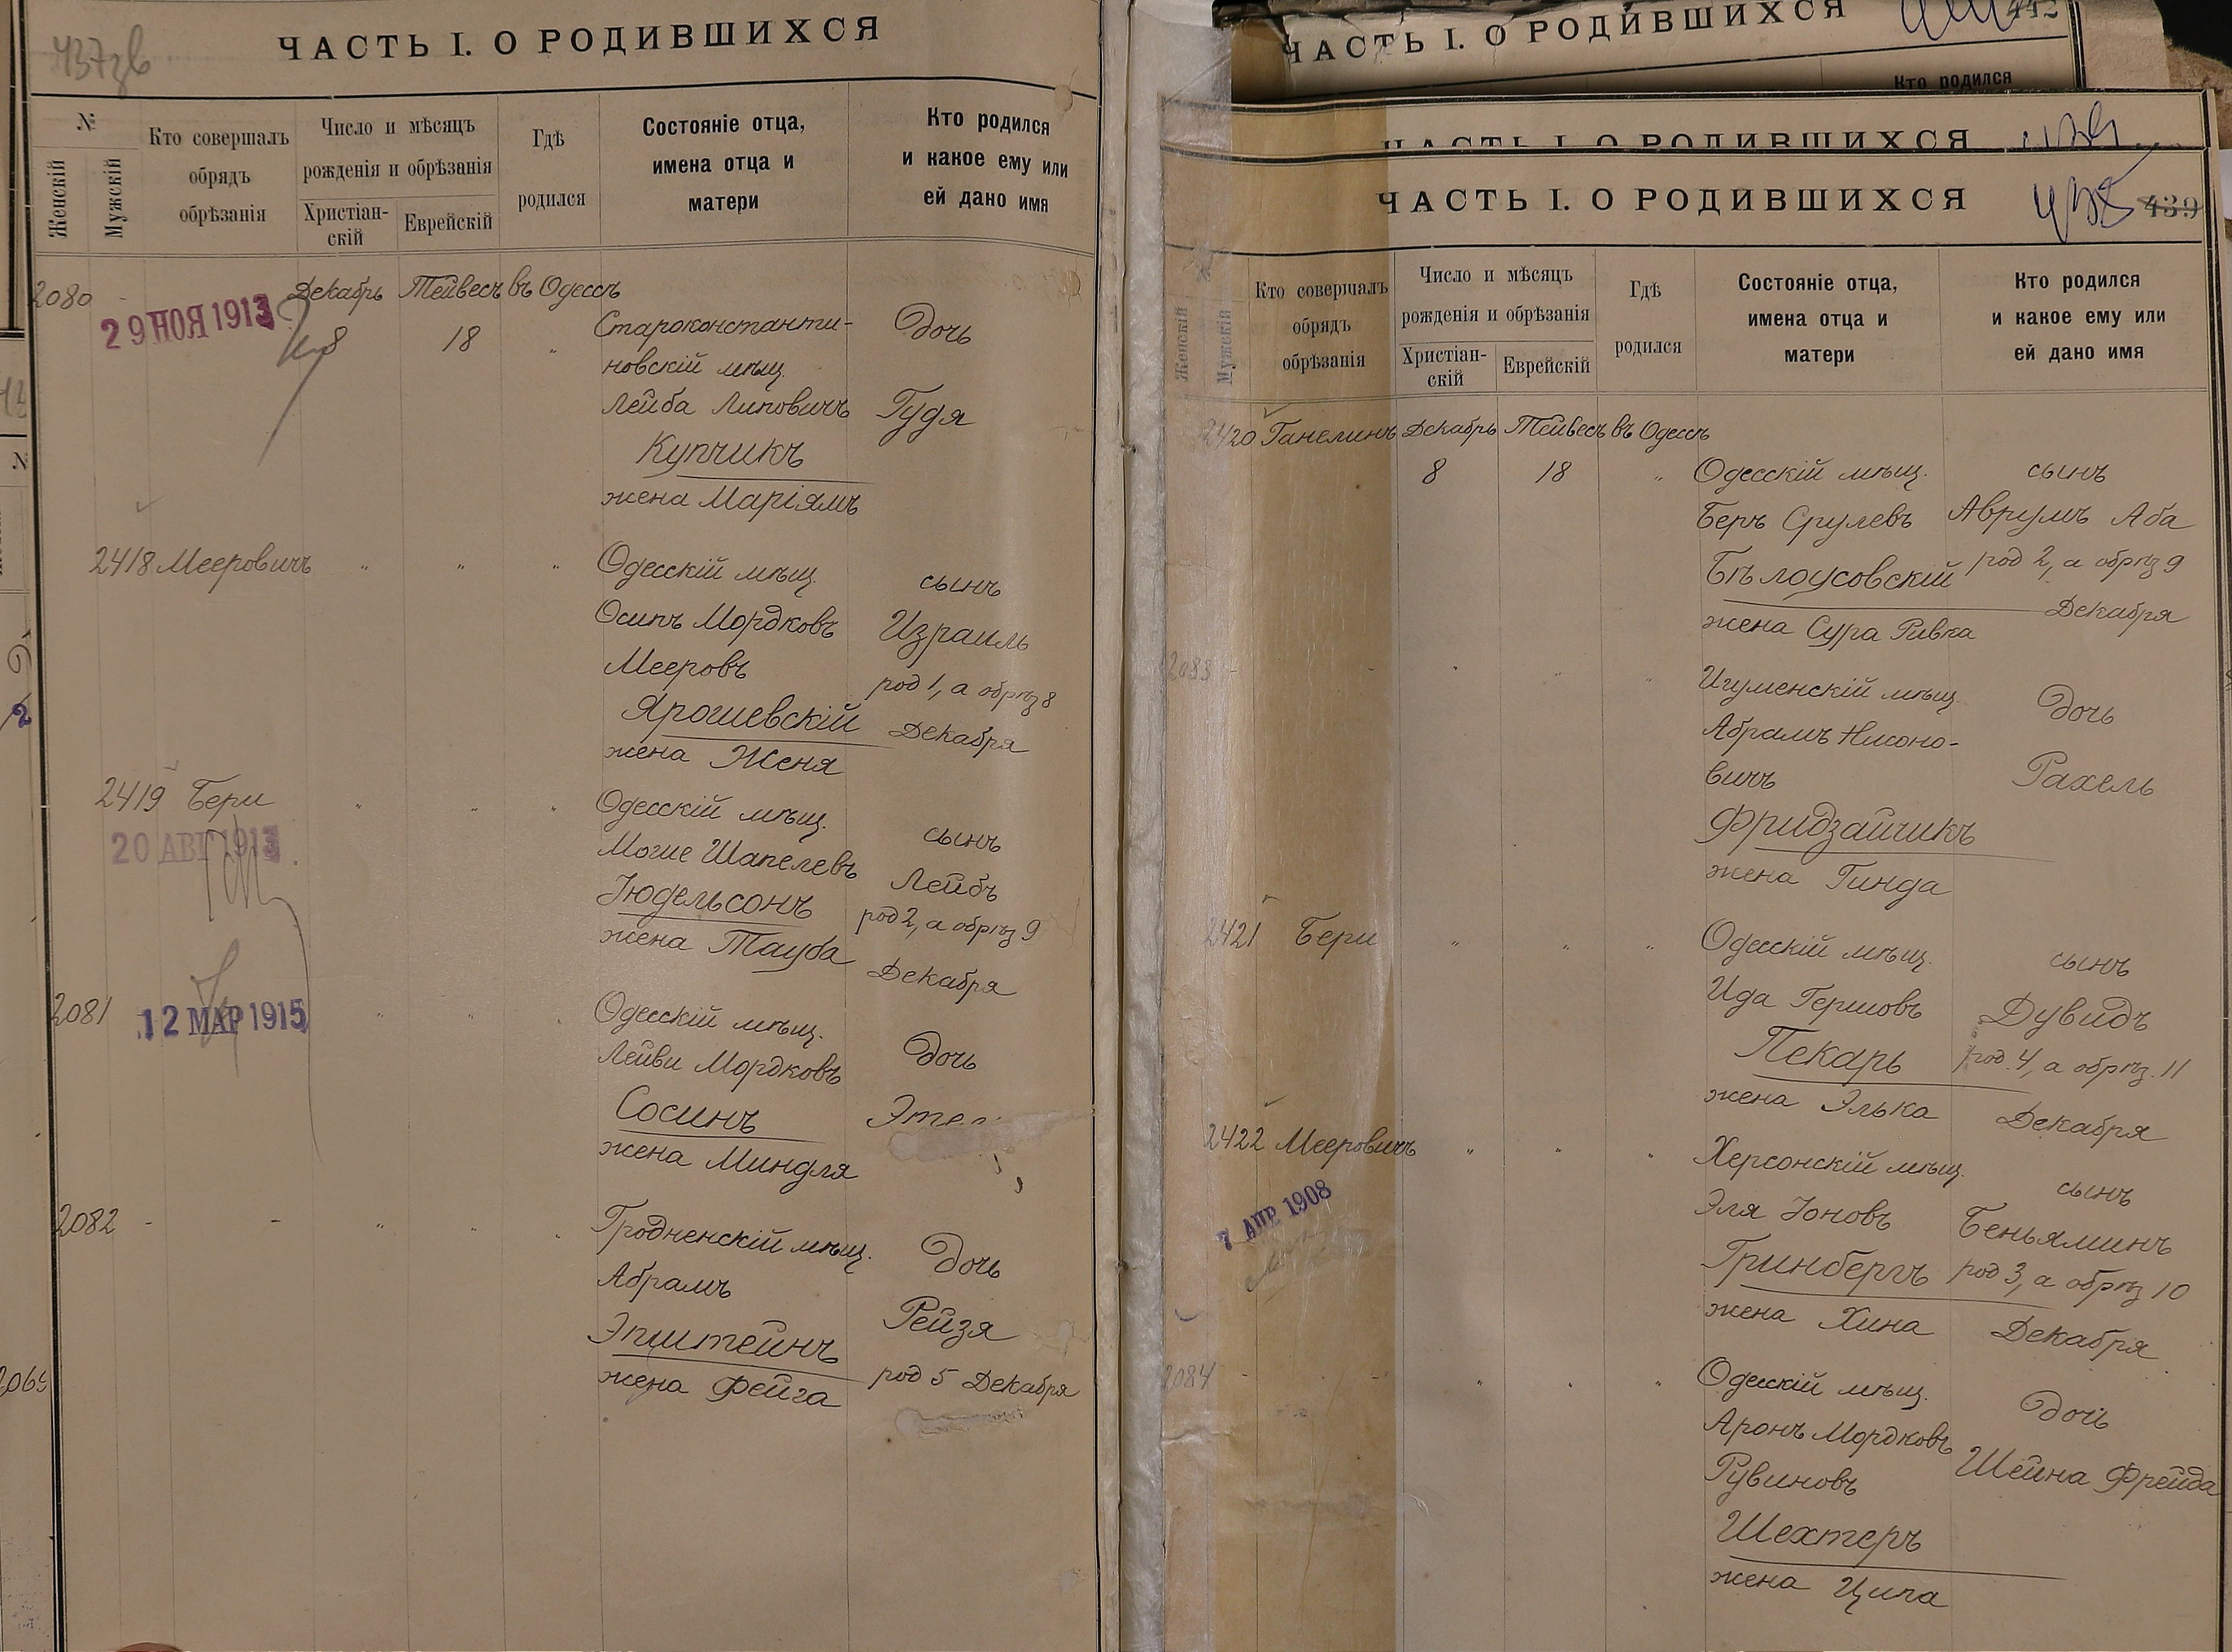 437зв
ЧАСТЬ I. О РОДИВШИХСЯ
№
Женскій
Мужскій
Кто совершалъ
обрядъ
обрѣзанія
Число и мѣсяцъ
рожденія и обрѣзанія
Христіан-
скій
Еврейскій
Гдѣ
родился
Состояніе отца,
имена отца и
матери
Кто родился
и какое ему или
ей дано имя
2080 - Декабрь Тейвесъ въ Одессѣ
29 НОЯ 1913
8 18 „ Староконстанти- Дочь
новскій мѣщ.
Лейба Липовичъ Гудя
Купчикъ
жена Маріямъ
2418 Мееровичъ „ „ „ Одесскій мѣщ. сынъ
Осипъ Мордковъ Израиль
Мееровъ род 1, а обрѣз 8
Ярошевскій Декабря
жена Женя
2419 Бери „ „ „ Одесскій мѣщ. сынъ
20 АВГ 1913
Мошие Шапелевъ Лейбъ
Іюдельсонъ род 2, а обрѣз 9
жена Тауба Декабря
2081 „ „ „ Одесскій мѣщ.
12 МАР 1915
Лейви Мордковъ Дочь
Сосинъ
жена Миндля
2082 - - „ „ „ Гродненскій мѣщ. Дочь
Абрамъ
Эпштейнъ Рейзя
жена Фейга род 5 Декабря
ЧАСТЬ I. О РОДИВШИХСЯ 442
Кто родился
ЧАСТЬ I. О РОДИВШИХСЯ
ЧАСТЬ I. О РОДИВШИХСЯ 438 439
Женскій
Мужскій
Кто совершалъ
обрядъ
обрѣзанія
Число и мѣсяцъ
рожденія и обрѣзанія
Христіан-
скій
Еврейскій
Гдѣ
родился
Состояніе отца,
имена отца и
матери
Кто родился
и какое ему или
ей дано имя
2420 Ганелинъ Декабрь Тейвесъ въ Одессѣ
8 18 „ Одесскій мѣщ. сынъ
Беръ Срулевъ Аврумъ Аба
Бѣлоусовскій род 2, а обрѣз 9
жена Сура Ривка Декабря
2083 - - „ „ „ Игуменскій мѣщ. Дочь
Абрамъ Нисоно-
вичъ Рахель
Фридзайчикъ
жена Гинда
2421 Бери „ „ „ Одесскій мѣщ. сынъ
Ида Гершовъ Дувидъ
Пекарь род. 4, а обрѣз. 11
жена Элька Декабря
2422 Мееровичъ „ „ „ Херсонскій мѣщ. сынъ
7 АПР 1908
Эля Іоновъ Беньяминъ
Гринбергъ род 3, а обрѣз 10
жена Хина Декабря
2084 - - „ „ „ Одесскій мѣщ. Дочь
Аронъ Мордковъ
Рувиновъ Шейна Фрейда
Шехтеръ
жена Ципа